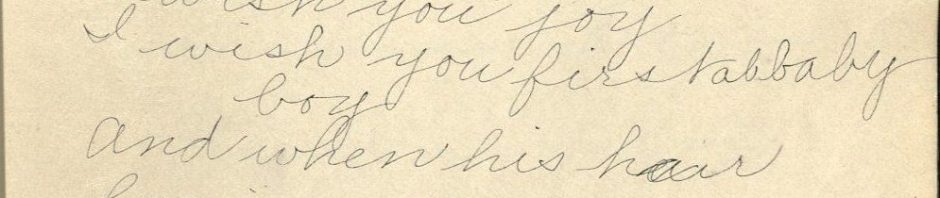 wish you joy
I wish you first abbaby
boy
and when his hair